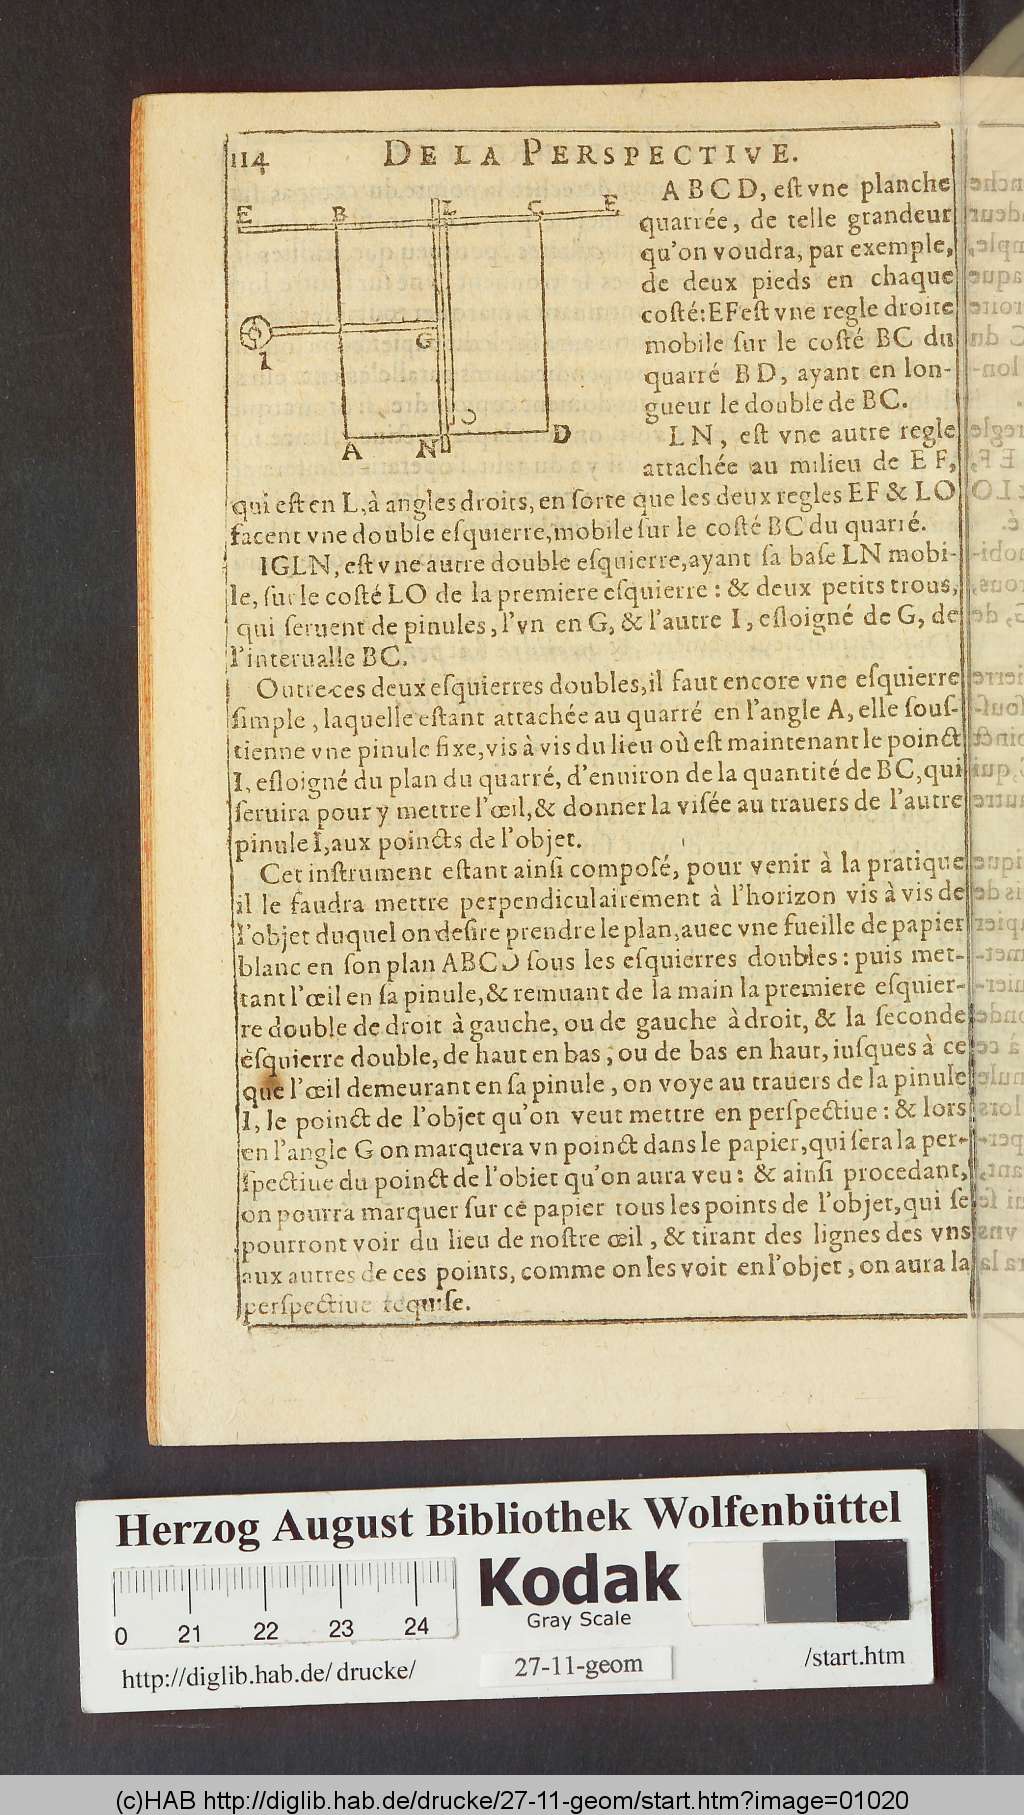 114
DE LA PERSPECTIVE.
E B L C E
I G
A N D
ABCD, eſt vne planche
quarrée, de telle grandeur
qu'on voudra, par exemple,
de deux pieds en chaque
coſté: EF eſt vne regle droite
mobile ſur le coſté BC du
quarré BD, ayant en lon-
gueur le double de BC.
LN, eſt vne autre regle
attachée au milieu de EF,
qui eſt en L, à angles droits, en ſorte que les deux regles EF & LO
facent vne double eſquierre, mobile ſur le coſté BC du quarré.
IGLN, eſt vne autre double eſquierre, ayant ſa baſe LN mobi-
le, ſur le coſté LO de la premiere eſquierre: & deux petits trous,
qui ſeruent de pinules, l'vn en G, & l'autre I, eſloigné de G, de
l'interualle BC.
Outre ces deux eſquierres doubles, il faut encore vne eſquierre
ſimple, laquelle eſtant attachée au quarré en l'angle A, elle ſouſ-
tienne vne pinule fixe, vis à vis du lieu où eſt maintenant le poinct
I, eſloigné du plan du quarré, d'enuiron de la quantité de BC, qui
ſeruira pour y mettre l'œil, & donner la viſée au trauers de l'autre
pinule I, aux poincts de l'objet.
Cet inſtrument eſtant ainſi compoſé, pour venir à la pratique
il le faudra mettre perpendiculairement à l'horizon vis à vis de
l'objet duquel on deſire prendre le plan, auec vne fueille de papier
blanc en ſon plan ABCD ſous les eſquierres doubles: puis met-
tant l'œil en ſa pinule, & remuant de la main la premiere eſquier-
re double de droit à gauche, ou de gauche à droit, & la ſeconde
eſquierre double, de haut en bas, ou de bas en haut, iuſques à ce
que l'œil demeurant en ſa pinule, on voye au trauers de la pinule
I, le poinct de l'objet qu'on veut mettre en perſpectiue: & lors
en l'angle G on marquera vn poinct dans le papier, qui ſera la per-
ſpectiue du poinct de l'obiet qu'on aura veu: & ainſi procedant,
on pourra marquer ſur ce papier tous les points de l'objet, qui ſe
pourront voir du lieu de noſtre œil, & tirant des lignes des vns
aux autres de ces points, comme on les voit en l'objet, on aura la
perſpectiue requiſe.
Herzog August Bibliothek Wolfenbüttel
Kodak
Gray Scale
0 21 22 23 24
http://diglib.hab.de/drucke/ 27-11-geom /start.htm
(c)HAB http://diglib.hab.de/drucke/27-11-geom/start.htm?image=01020